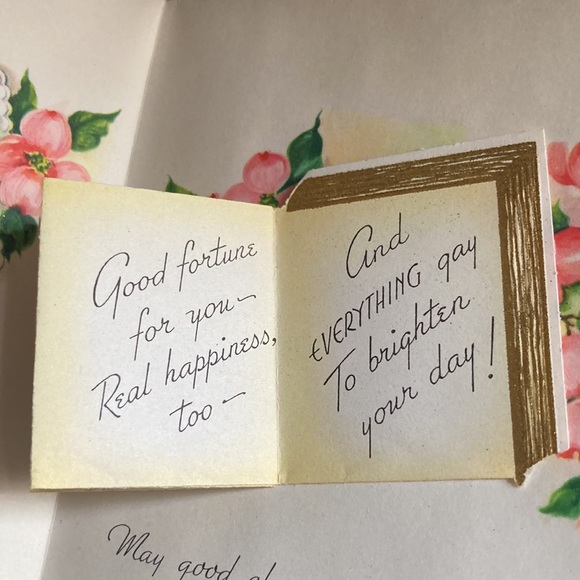 Good fortune
for you—
Real happiness,
too—
And
EVERYTHING gay
To brighten
your day!
May good